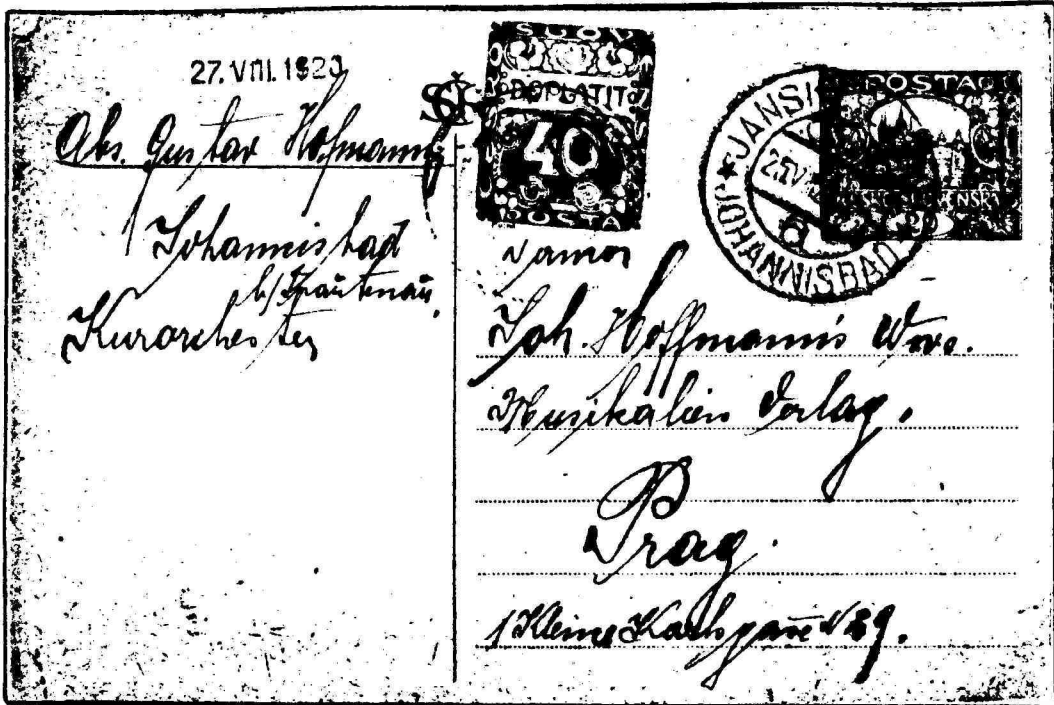 27. VIII. 1920
Abs. Gustav Hofmann
Johannisbad
b/Trautenau.
Kurorchester
DOPLATIT
40
POSTA
POSTA
JOHANNISBAD
Joh. Hoffmann's Wwe.
Musikalien Verlag.
Prag.
1 Kleine Karlsgasse N 29.